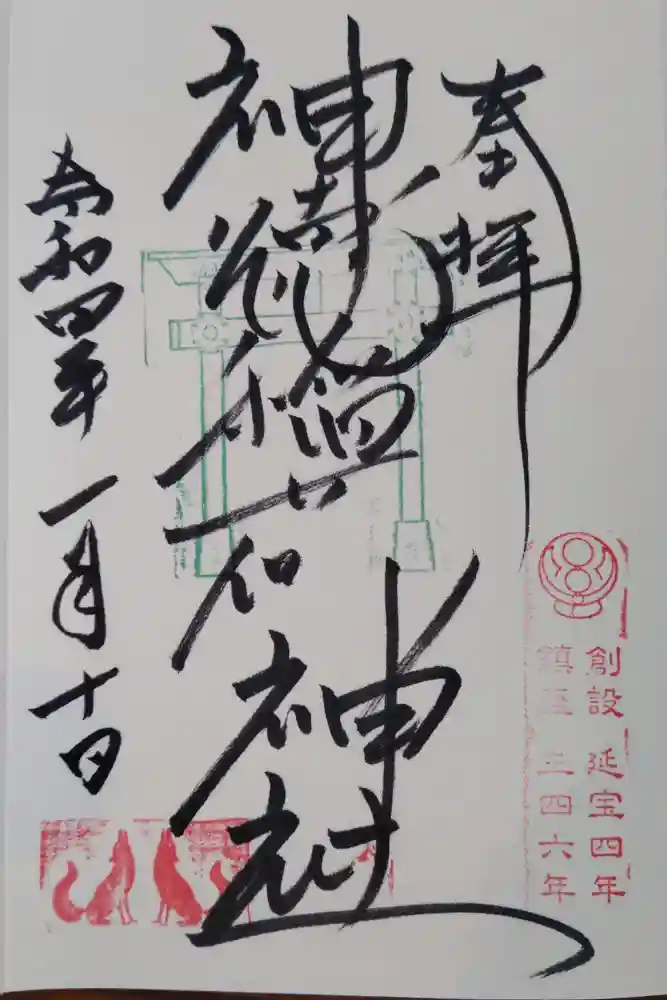 奉拝
神徳稲荷神社
令和四年一月十日
創設 延宝四年
鎮座 三四六年